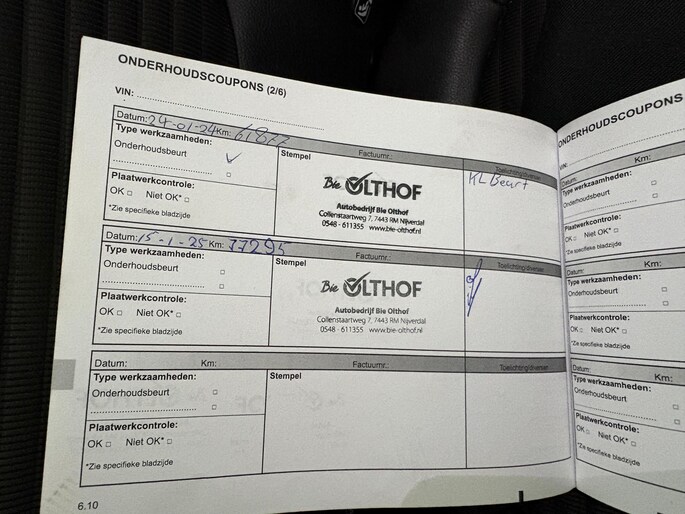 ONDERHOUDSCOUPONS (2/6)
VIN:
Datum: 24-01-24 Km: 61877
Type werkzaamheden:
Onderhoudsbeurt
Plaatwerkcontrole:
OK □ Niet OK* □
*Zie specifieke bladzijde
Stempel
Factuurnr.:
Bie OLTHOF
Autobedrijf Bie Olthof
Collenstaartweg 7, 7443 RM Nijverdal
0548 - 611355 www.bie-olthof.nl
Toelichting/diversen
KL Beurt
Datum: 15-1-25 Km: 77295
Type werkzaamheden:
Onderhoudsbeurt
Plaatwerkcontrole:
OK □ Niet OK* □
*Zie specifieke bladzijde
Stempel
Factuurnr.:
Bie OLTHOF
Autobedrijf Bie Olthof
Collenstaartweg 7, 7443 RM Nijverdal
0548 - 611355 www.bie-olthof.nl
Toelichting/diversen
Datum: Km:
Type werkzaamheden:
Onderhoudsbeurt
Plaatwerkcontrole:
OK □ Niet OK* □
*Zie specifieke bladzijde
Stempel
Factuurnr.:
Toelichting/diversen
6.10
ONDERHOUDSCOUPONS
VIN:
Datum: Km:
Type werkzaamheden:
Onderhoudsbeurt
Plaatwerkcontrole:
OK □ Niet OK* □
*Zie specifieke bladzijde
Datum: Km:
Type werkzaamheden:
Onderhoudsbeurt
Plaatwerkcontrole:
OK □ Niet OK* □
*Zie specifieke bladzijde
Datum: Km:
Type werkzaamheden:
Onderhoudsbeurt
Plaatwerkcontrole:
OK □ Niet OK* □
*Zie specifieke bladzijde